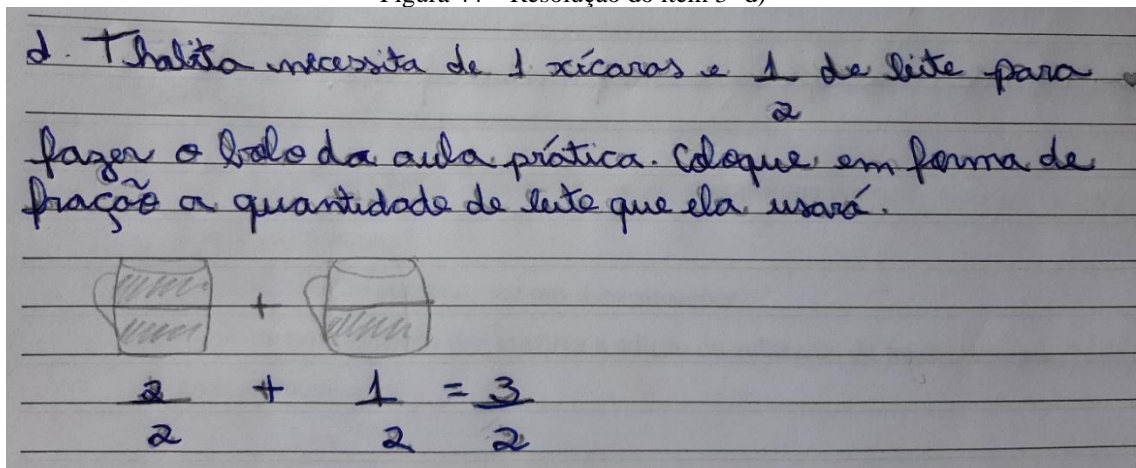 Figura 44 – Resolução do item 3 d)
d. Thalita necessita de 1 xícaras e 1/2 de leite para
fazer o bolo da aula prática. Coloque em forma de
fração a quantidade de leite que ela usará.
+
2/2 + 1/2 = 3/2